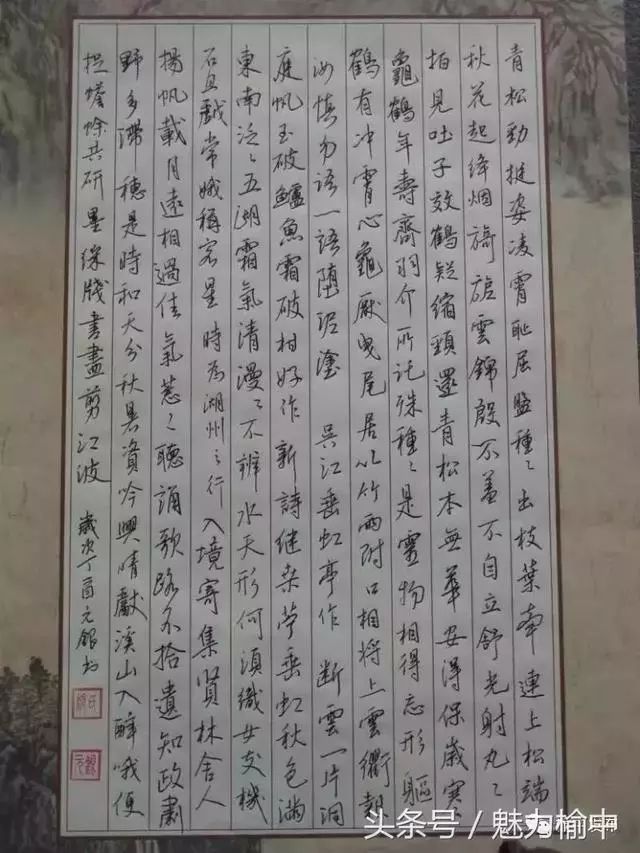 青松勁挺姿凌霄恥屈盤種〻出枝葉牽連上松端
秋花起絳烟旖旎雲錦殷不羞不自立舒光射丸〻
柏見吐子效鶴疑縮頸還青松本無華安得保歲寒
龜鶴年壽齊羽介所託殊種〻是靈物相得忘形軀
鶴有冲霄心龜厭曳尾居以竹兩附口相將上雲衢報
汝慎勿語一語墮泥塗 吳江垂虹亭作 断雲一片洞
庭帆玉破鱸魚霜破柑好作新詩继桑苧垂虹秋色滿
東南泛〻五湖霜氣清漫〻不辨水天形何須織女支機
石且戲常娥稱客星 時為湖州之行 入境寄集賢林舍人
揚帆載月遠相過佳氣葱〻聽誦歌路不拾遺知政肅
野多滯穗是時和天分秋暑資吟興晴獻溪山入醉哦便
捉蟾蜍共研墨綵牋書盡剪江波 歲次丁酉元銀书
头条号／魅力榆中